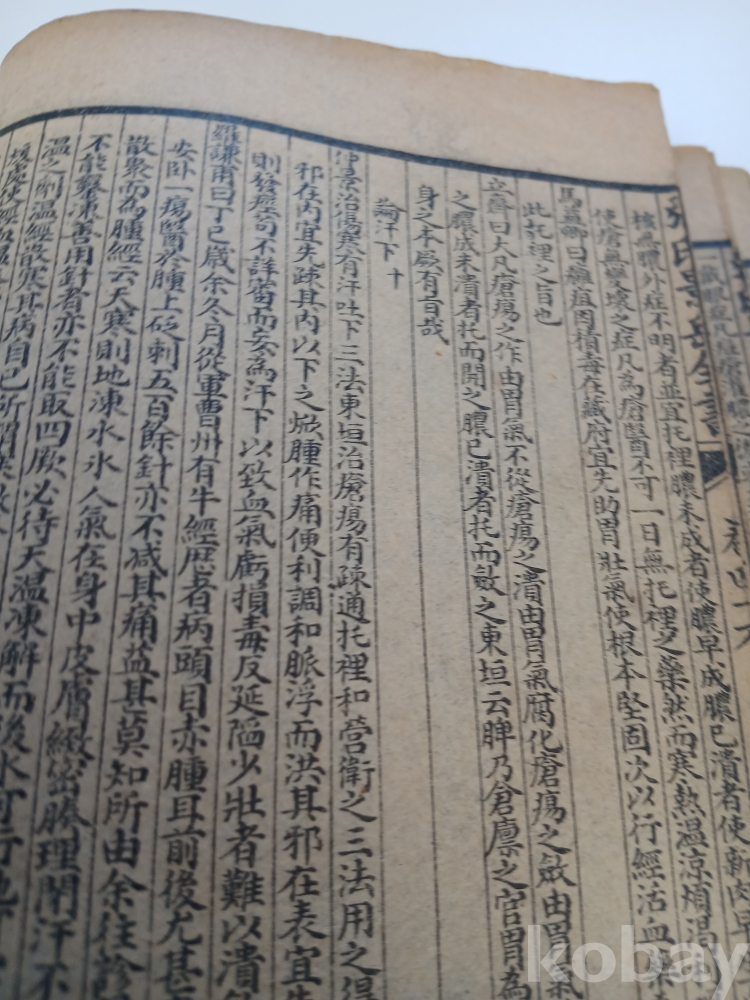 張氏景岳全書 卷四十六
核無膿外症不明者並宜托裡膿未成者使膿早成膿已潰者使新肉早
使瘡無變壞之症凡為瘡醫不可一日無托裡之藥然而寒熱溫涼煩渴
馬益卿曰癰疽因積毒在藏府宜先助胃壯氣使根本堅固次以行經活血藥
此托裡之旨也
立齋曰大凡瘡瘍之作由胃氣不從瘡瘍之潰由胃氣腐化瘡瘍之斂由胃氣
之膿成未潰者托而開之膿已潰者托而斂之東垣云脾乃倉廩之官胃為
身之本厥有旨哉
論汗下 十
仲景治傷寒有汗吐下三法東垣治瘡瘍有疏通托裡和營衛之三法用之得
邪在內宜先疎其內以下之焮腫作痛便利調和脈浮而洪其邪在表宜先
則發痙苟不詳審而妄為汗下以致血氣虧損毒反延陷少壯者難以潰
羅謙甫曰丁巳歲余冬月從軍曹州有牛經歷者病頭目赤腫耳前後尤甚
安卧一瘍醫於腫上砭刺五百餘針亦不減其痛益甚莫知所由余往診
散聚而為腫經云天寒則地凍水氷人氣在身中皮膚緻密腠理閉汗不
不能鑿凍善用針者亦不能取四厥必待天溫凍解而後水可行地
溫之劑溫經散寒其病自已所謂
kobay